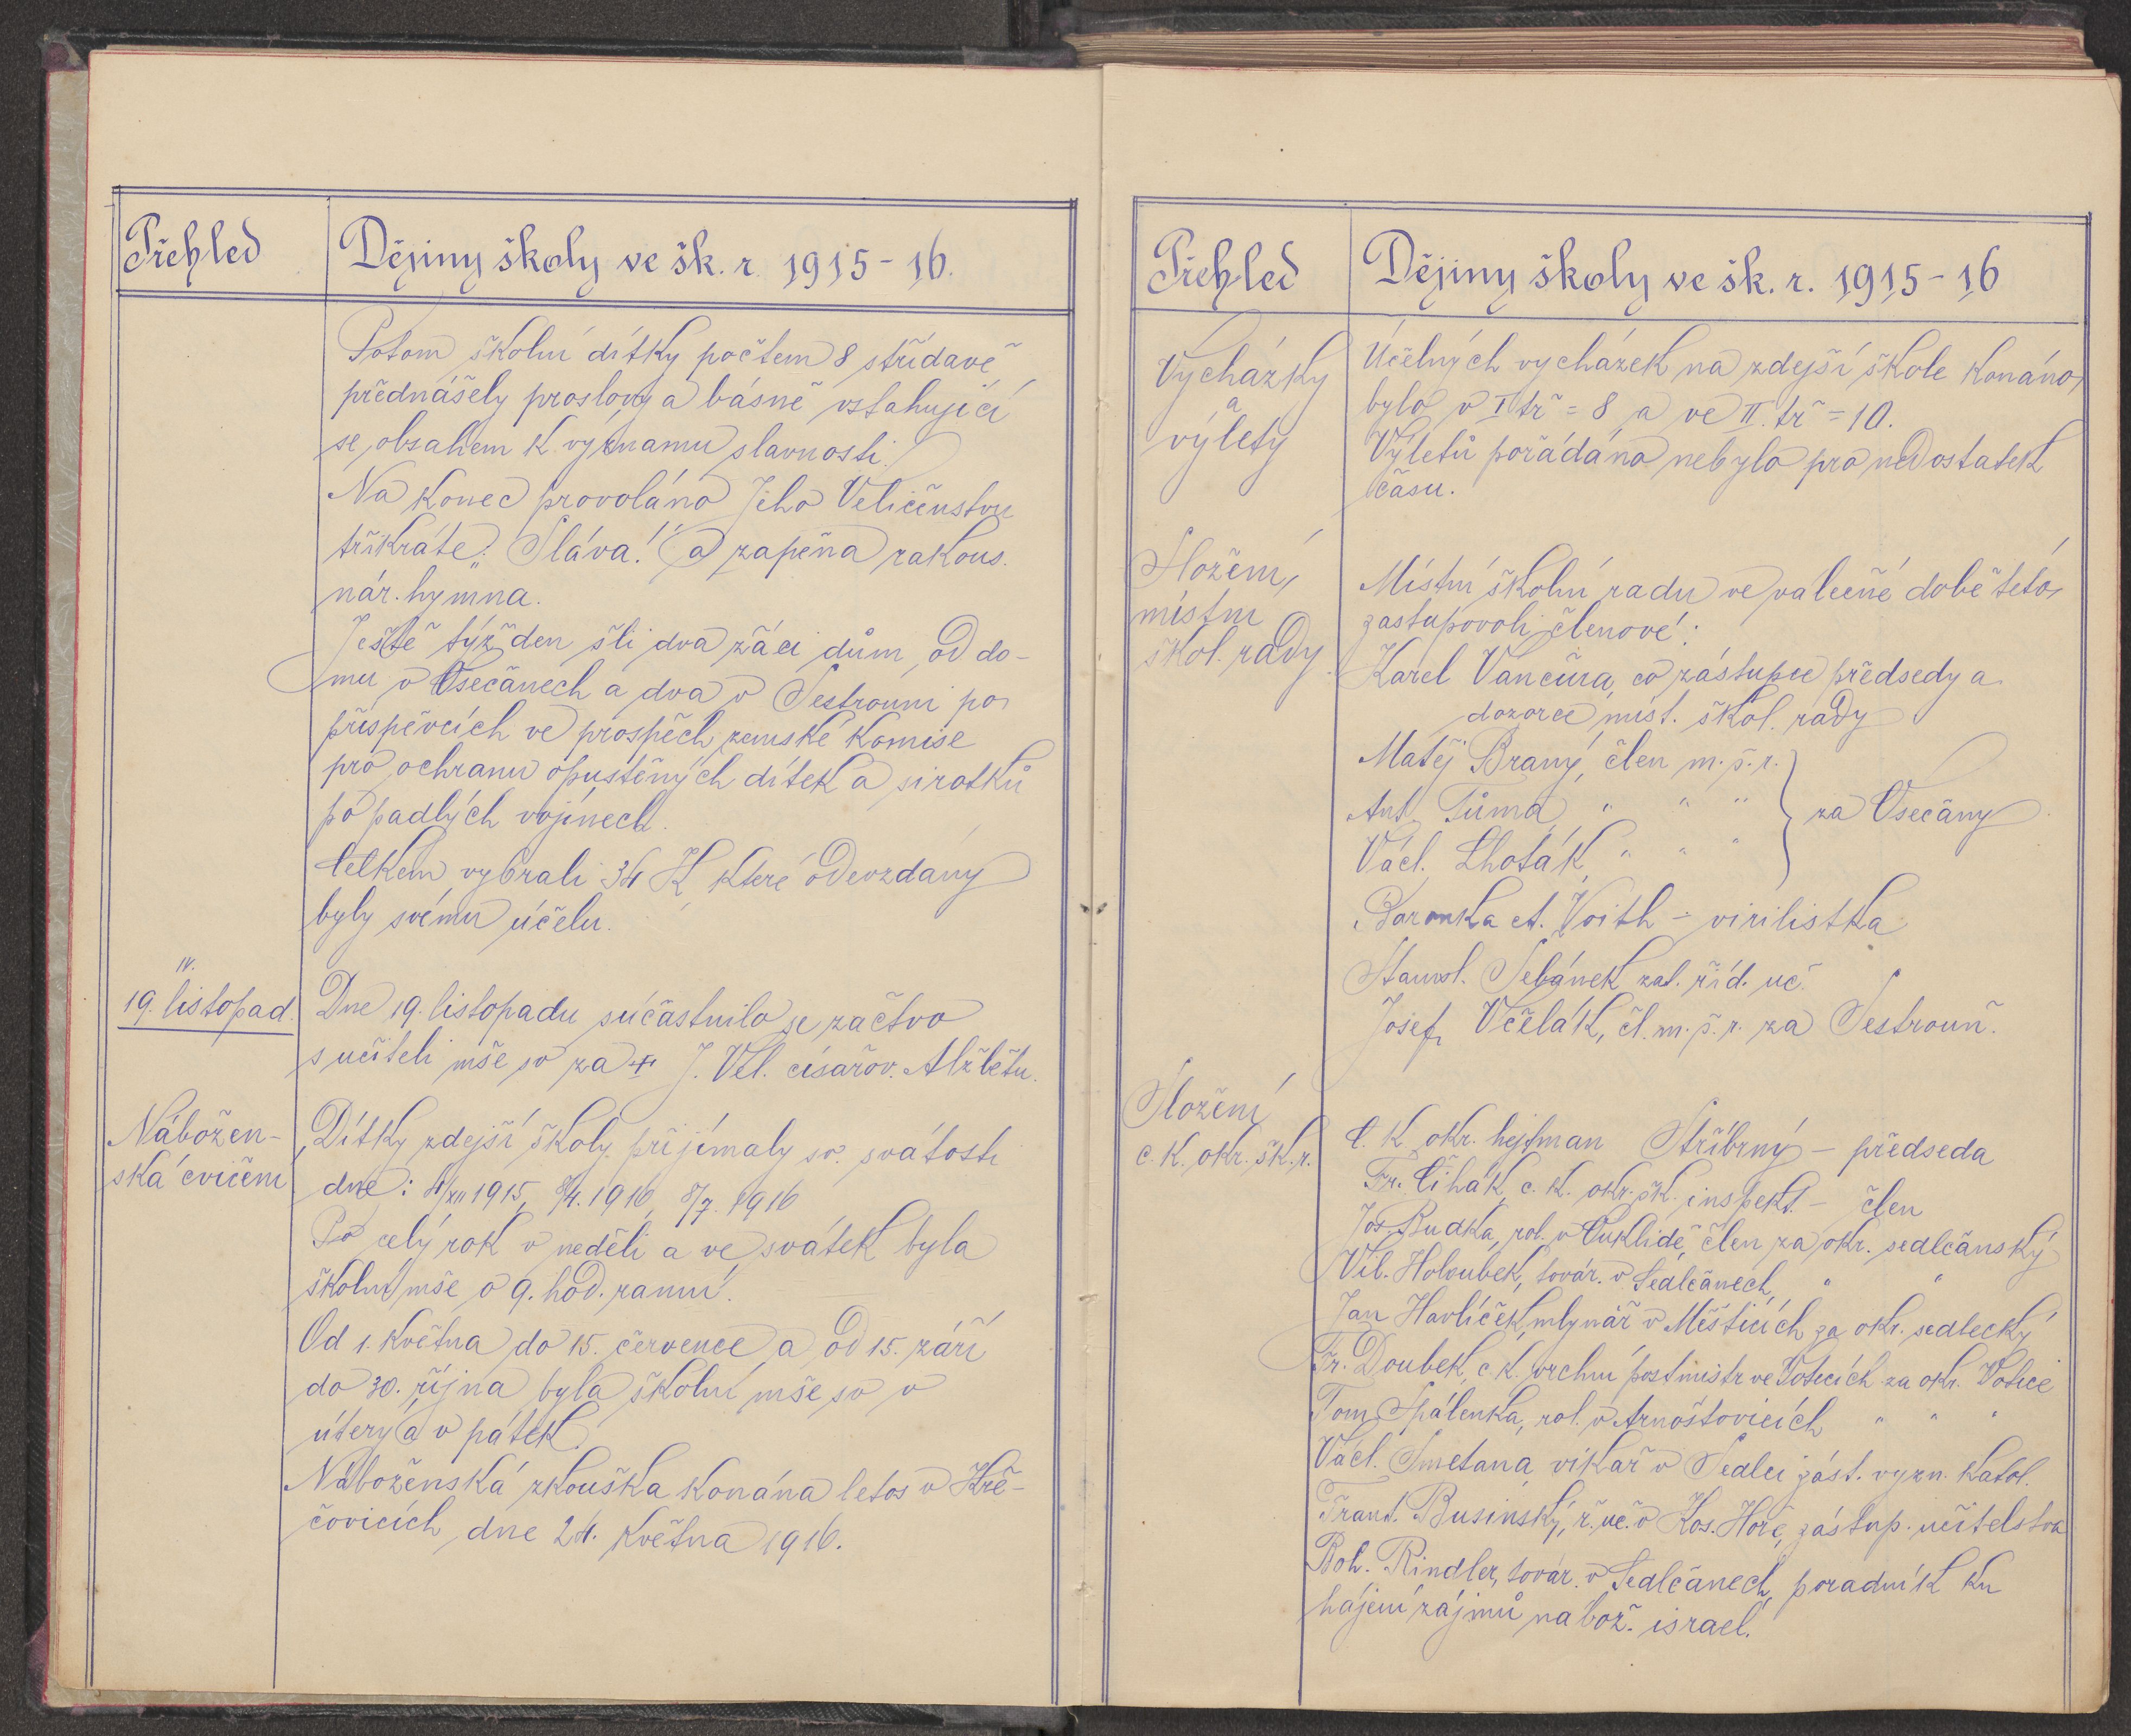 Přehled
Dějiny školy ve šk. r. 1915-16.
Potom školní dítky počtem 8 střídavě
přednášely proslovy a básně vztahující
se obsahem k významu slavnosti.
Na konec provoláno Jeho Veličenstvu
třikráte: „Sláva!“ a zapěna rakous.
nár. hymna.
Ještě týž den šli dva žáci dům od do-
mu v Osečanech a dva v Sestrouni po
příspěvcích ve prospěch zemské komise
pro ochranu opuštěných dítek a sirotků
po padlých vojínech.
Celkem vybrali 34 K, které odevzdány
byly svému účelu.
IV.
19. listopad.
Dne 19. listopadu súčastnilo se žactvo
s učiteli mše sv za + J. Vel. císařov. Alžbětu.
Nábožen-
ská cvičení
Dítky zdejší školy přijímaly sv. svátosti
dne: 4/XII 1915, 8/4. 1916, 8/7. 1916
Po celý rok v neděli a ve svátek byla
školní mše o 9. hod. ranní.
Od 1. května do 15. července a od 15. září
do 30. října byla školní mše sv v
úterý a v pátek.
Náboženská zkouška konána letos v Kře-
čovicích dne 24. května 1916.
Přehled
Dějiny školy ve šk. r. 1915-16
Vycházky
a
výlety
Účelných vycházek na zdejší škole konáno
bylo v I tř = 8 a ve II. tř = 10.
Výletů pořádáno nebylo pro nedostatek
času.
Složení
místní
škol. rady.
Místní školní radu ve válečné době této
zastupovali členové:
Karel Vančura, co zástupce předsedy a
dozorce míst. škol. rady
Matěj Braný, člen m. š. r.
Ant. Tůma, " " "
za Osečany
Václ. Lhoták, " " "
Baronka A. Voith - virilistka
Stanisl. Šebánek zat. říd. uč.
Josef Včelák, čl. m. š. r. za Sestrouň.
Složení
c. k. okr. šk. r.
C. k. okr. hejtman Stříbrný - předseda
Fr. Čihák, c. k. okr. šk. inspekt. - člen
Jos. Rudka, rol. v Cuklidě, člen za okr. sedlčanský
Vil. Holoubek, továr. v Sedlčanech, " "
Jan Havlíček, mlynář v Měšticích za okr. sedlecký
Fr. Doubek, c. k. vrchní poštmistr ve Voticích za okr. Votice
Tom. Spálenka, rol. v Arnoštovicích " " "
Václ. Smetana, vikář v Sedlci zást. vyzn. katol.
Frant. Businský, ř. uč. v Kos. Hoře, zástup. učitelstva
Boh. Rindler, továr. v Sedlčanech, poradník ku
hájení zájmů nábož. israel.